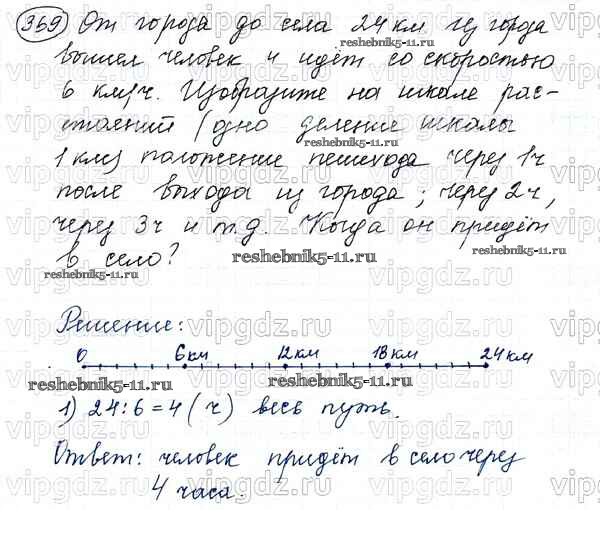 369 От города до села 24 км из города
вышел человек и идёт со скоростью
6 км/ч. Изобразите на шкале рас-
стояний (одно деление шкалы
1 км) положение пешехода через 1ч
после выхода из города; через 2ч,
через 3ч и т.д. Когда он придёт
в село?
Решение:
0 6км 12км 18км 24км
1) 24:6=4 (ч) весь путь.
Ответ: человек придёт в село через
4 часа.
reshebnik5-11.ru
reshebnik5-11.ru
reshebnik5-11.ru
reshebnik5-11.ru
reshebnik5-11.ru
reshebnik5-11.ru
vipgdz.ru